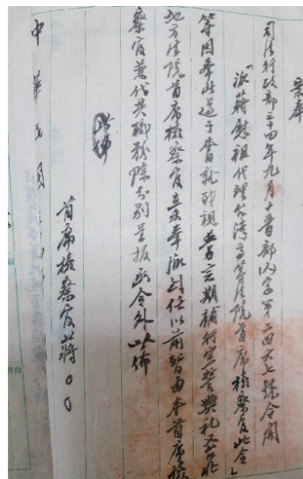 案奉
司法行政部三十四年九月十二日部人字第二四六七號令開
「派蔣慰祖代理台灣高等法院首席檢察官此令」
等因奉此遵于本日就職視事另定期補行宣誓典禮至台北
地方法院首席檢察官未奉派到任以前暫由本首席檢
察官兼代其職務除分別呈報函令外此佈
此佈
首席檢察官蔣○○
中華民國